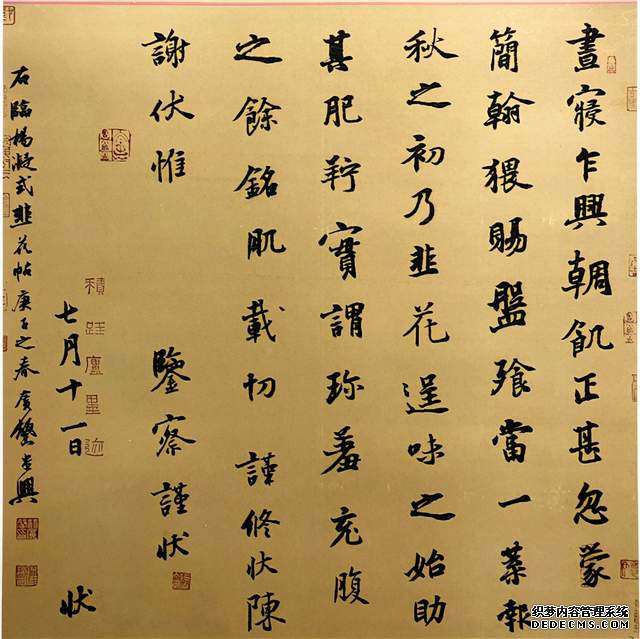 晝寢乍興輖飢正甚忽蒙
簡翰猥賜盤飧當一葉報
秋之初乃韭花逞味之始助
其肥羜實謂珍羞充腹
之餘銘肌載切 謹修狀陳
謝伏惟 鑒察謹狀
七月十一日 狀
積跬廬墨迹
右臨楊凝式韭花帖庚子之春
织梦内容管理系统
DEDECMS.COM